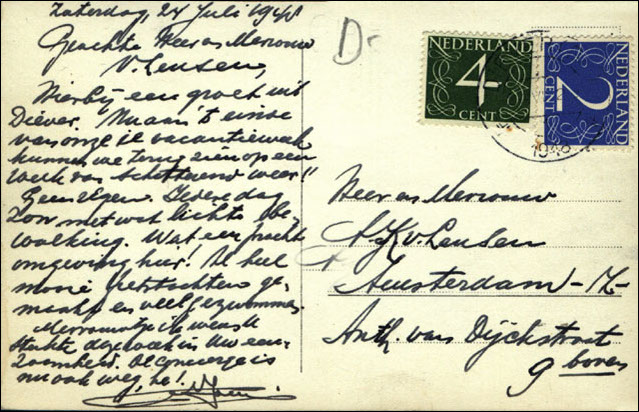 Zaterdag, 24 Juli 1948
Geachte Heer en Mevrouw
v. Leusen,
Hierbij een groet uit
Diever. Nu aan 't einde
van onze 1e vacantieweek
kunnen we terug zien op een
week van schitterend weer!
Geen regen. Iedere dag
zon met wat lichte be-
wolking. Wat een pracht
omgeving hier! Al heel
mooie fietstochten ge-
maakt en veel gezwommen.
Mevrouwtje ik wens U
sterkte deze week in Uw een-
zaamheid. De Concierge is
nu ook weg, hè!
D-
NEDERLAND
4
CENT
NEDERLAND
2
CENT
1948
Heer en Mevrouw
A. K. v. Leusen
Amsterdam-Z-
Anth. van Dijckstraat
9 boven